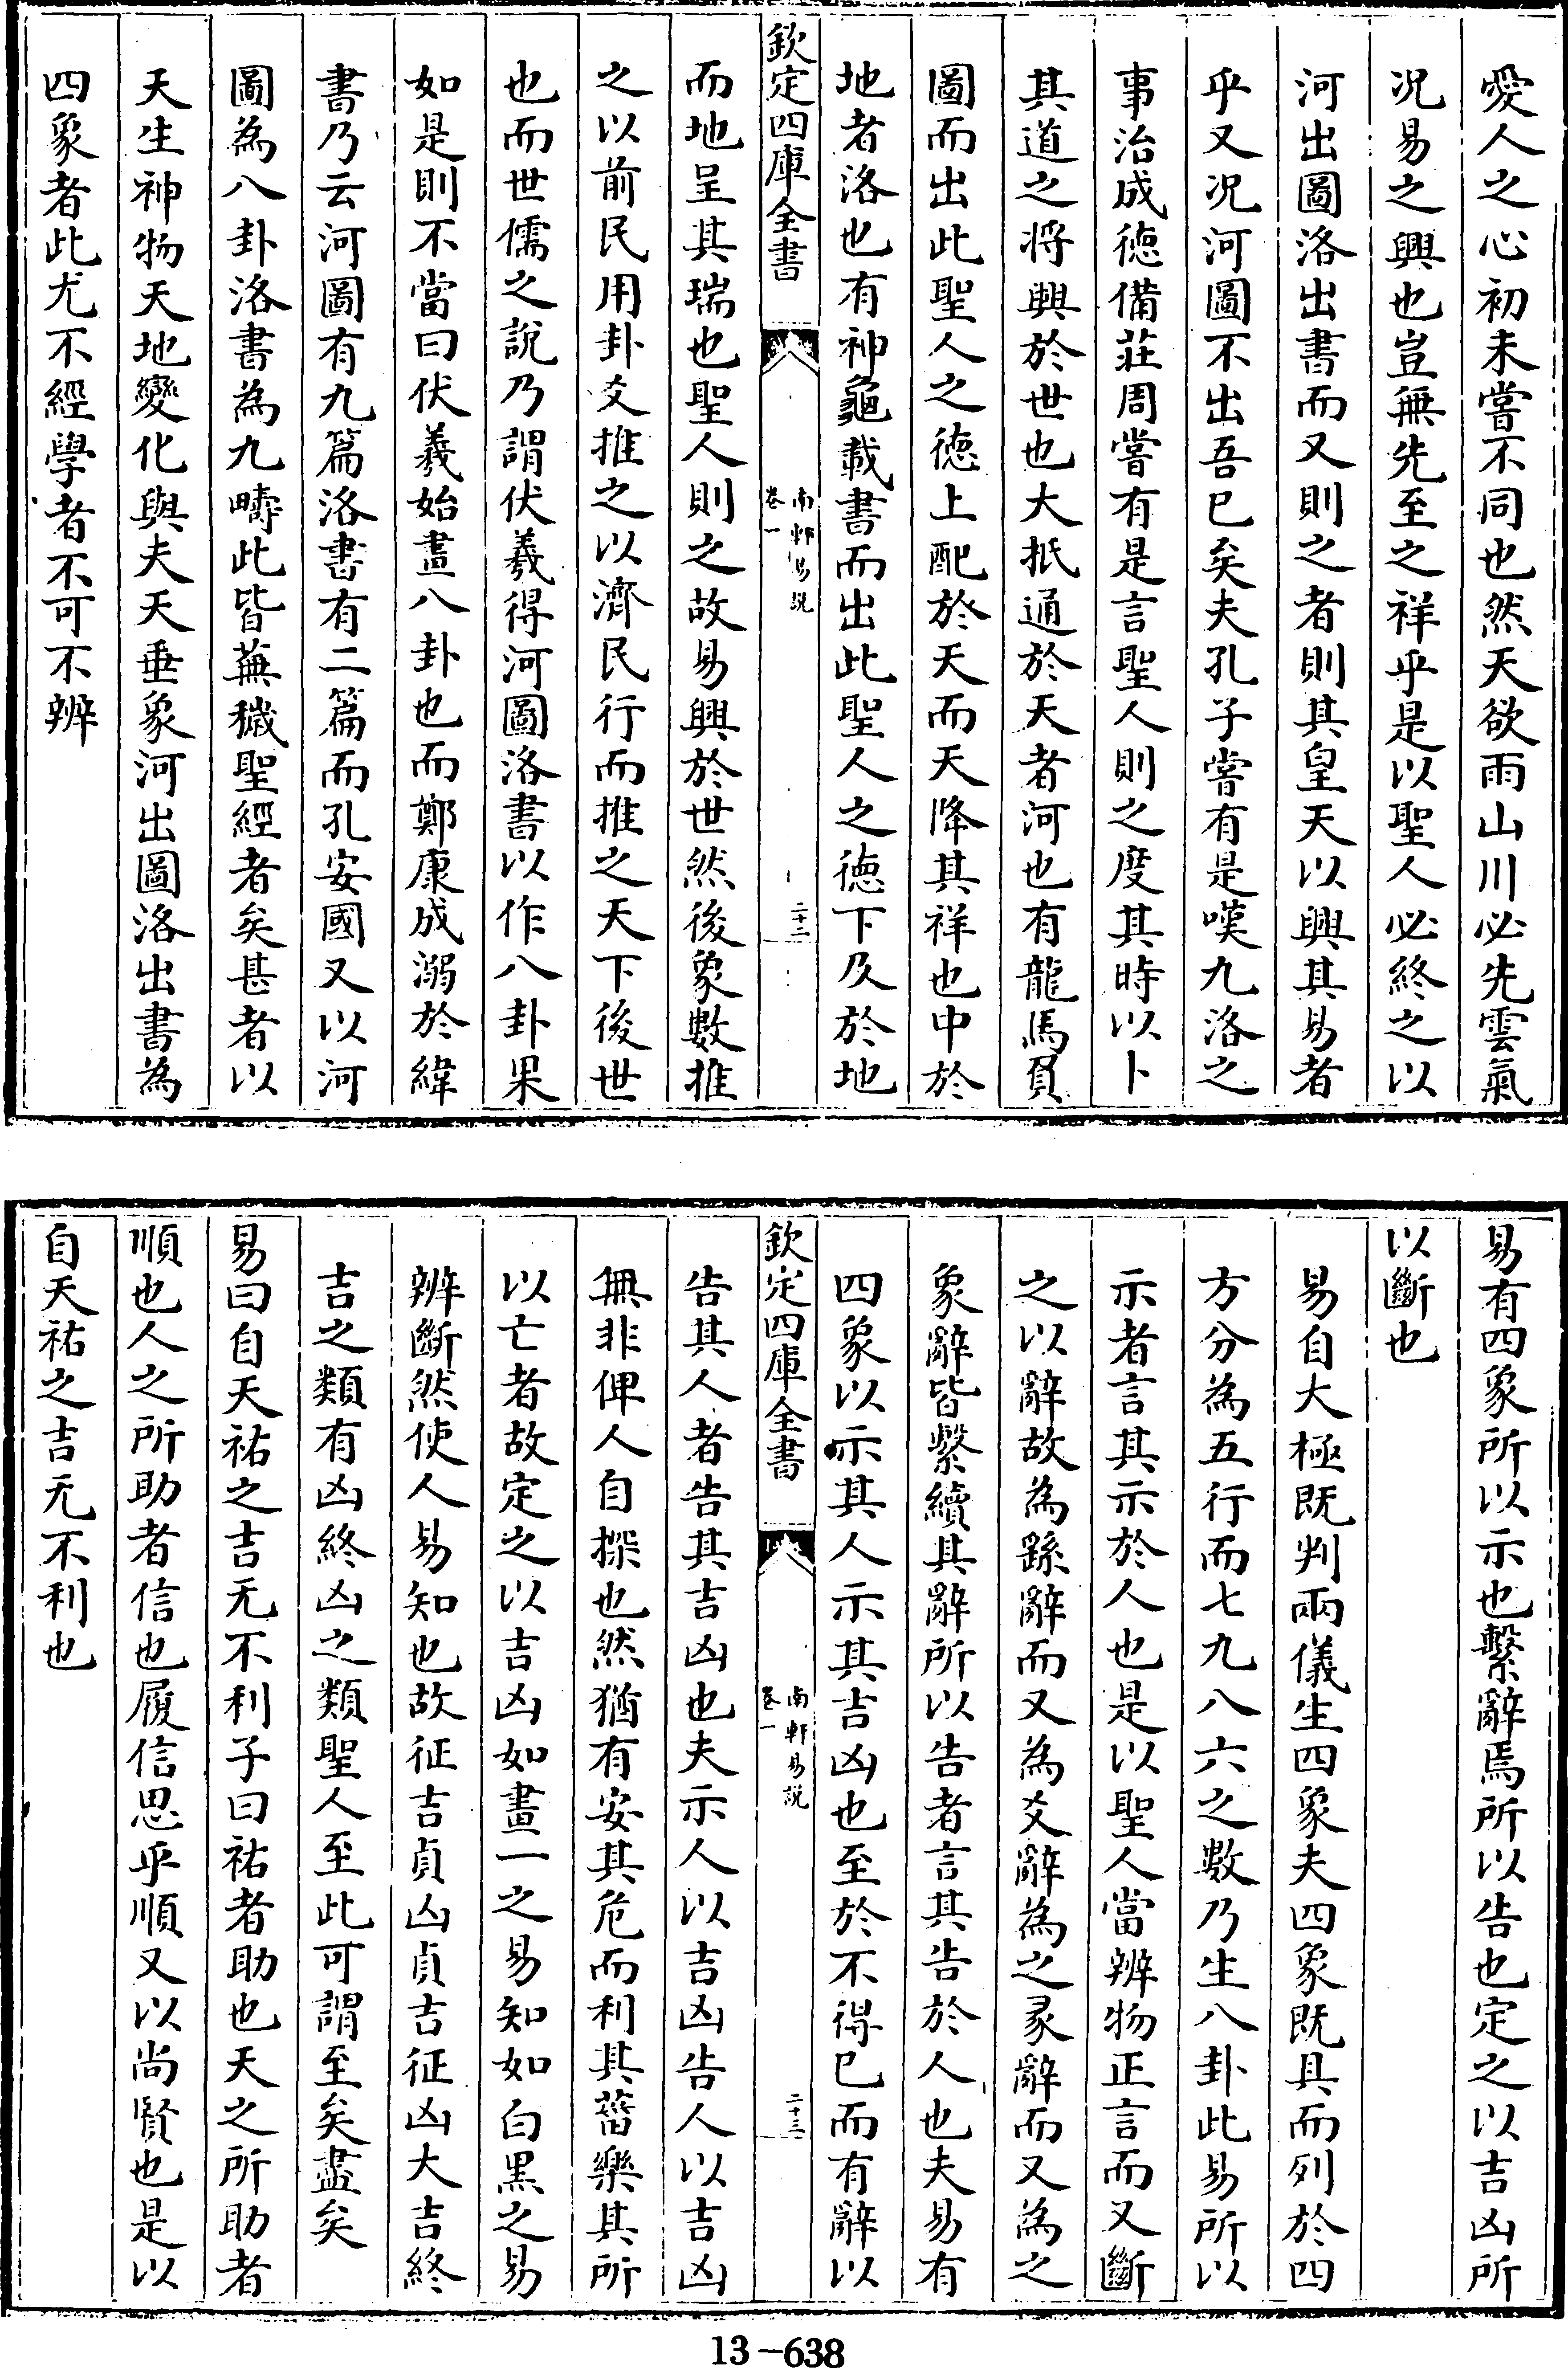 愛人之心初未嘗不同也然天欲雨山川必先雲氣
况易之興也豈無先至之祥乎是以聖人必終之以
河出圖洛出書而又則之者則其皇天以興其易者
乎又况河圖不出吾已矣夫孔子嘗有是嘆九洛之
事治成徳備莊周嘗有是言聖人則之度其時以卜
其道之將興於世也大抵通於天者河也有龍馬負
圖而出此聖人之徳上配於天而天降其祥也中於
地者洛也有神龜載書而出此聖人之徳下及於地
欽定四庫全書
南軒易説
卷一
二十二
而地呈其瑞也聖人則之故易興於世然後象數推
之以前民用卦爻推之以濟民行而推之天下後世
也而世儒之說乃謂伏羲得河圖洛書以作八卦果
如是則不當曰伏羲始畫八卦也而鄭康成溺於緯
書乃云河圖有九篇洛書有二篇而孔安國又以河
圖為八卦洛書為九疇此皆蕪穢聖經者矣甚者以
天生神物天地變化與夫天垂象河出圖洛出書為
四象者此尤不經學者不可不辨
易有四象所以示也繫辭焉所以告也定之以吉凶所
以斷也
易自大極既判兩儀生四象夫四象既具而列於四
方分為五行而七九八六之數乃生八卦此易所以
示者言其示於人也是以聖人當辨物正言而又斷
之以辭故為繇辭而又為爻辭為之彖辭而又為之
象辭皆繫續其辭所以告者言其告於人也夫易有
四象以示其人示其吉凶也至於不得已而有辭以
欽定四庫全書
南軒易説
卷一
二十三
告其人者告其吉凶也夫示人以吉凶告人以吉凶
無非俾人自擇也然猶有安其危而利其菑樂其所
以亡者故定之以吉凶如畫一之易知如白黑之易
辨斷然使人易知也故征吉貞凶貞吉征凶大吉終
吉之類有凶終凶之類聖人至此可謂至矣盡矣
易曰自天祐之吉无不利子曰祐者助也天之所助者
順也人之所助者信也履信思乎順又以尚賢也是以
自天祐之吉无不利也
13-638